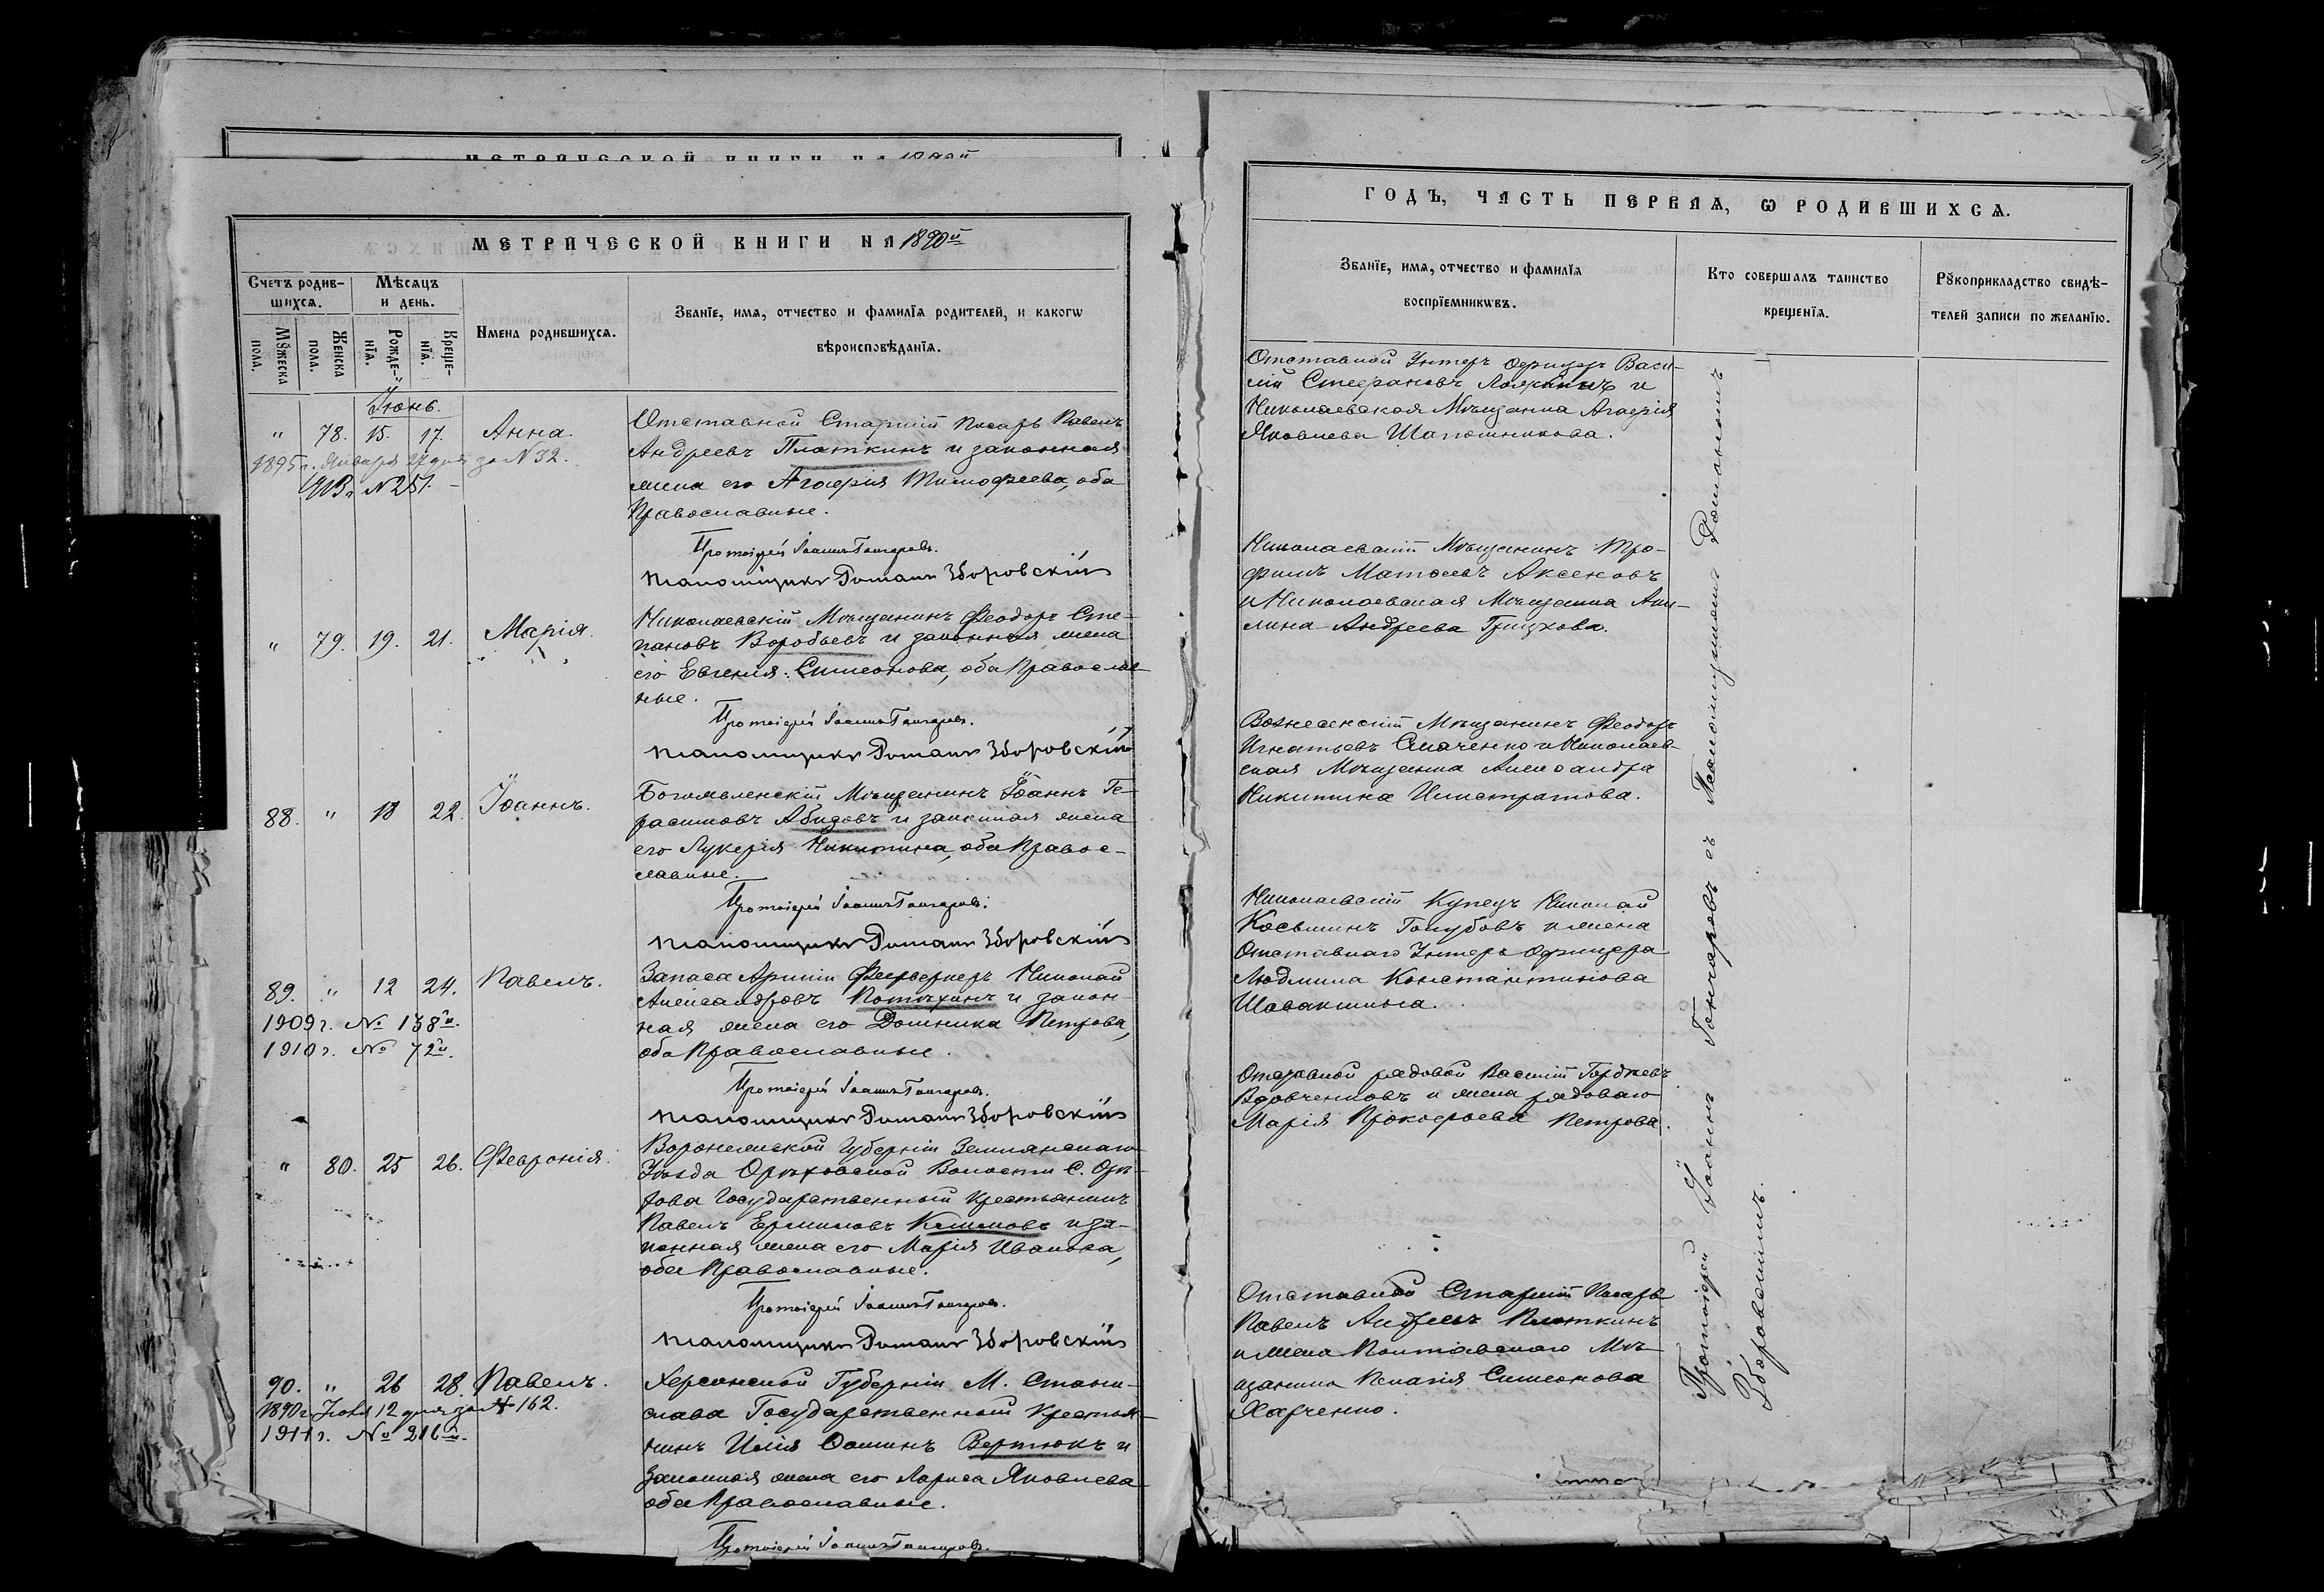 МЕТРИЧЕСКОЙ КНИГИ НА 1890й
Счетъ родив-
шихся.
Мѣсяцъ
и день.
Мужеска
пола.
Женска
пола.
Рожде-
нія.
Креще-
нія.
Имена родившихся.
Званіе, имя, отчество и фамилія родителей, и какогѡ
вѣроисповѣданія.
Іюнь.
" 78. 15. 17. Анна
1895 г. Января 27 дня за № 32.
1913 г. № 251.
Отставной Старшій Писарь Павелъ
Андреевъ Плоткинъ и законная
жена его Агафія Тимофеева, оба
Православные.
Протоіерей Іоаннъ Гончаровъ.
Псаломщикъ Романъ Зборовскій
" 79. 19. 21. Марія.
Николаевскій Мѣщанинъ Феодоръ Сте-
пановъ Воробьевъ и законная жена
его Евгенія Симеонова, оба Православ-
ные.
Протоіерей Іоаннъ Гончаровъ.
Псаломщикъ Романъ Зборовскій
88. " 18 22. Іоаннъ.
Богоявленскій Мѣщанинъ Іоаннъ Ге-
расимовъ Абидовъ и законная жена
его Лукерія Никитина, оба Правос-
лавные.
Протоіерей Іоаннъ Гончаровъ.
Псаломщикъ Романъ Зборовскій
89. " 12 24. Павелъ.
1909 г. № 138й.
1910 г. № 72й.
Запаса Арміи Фейерверкеръ Николай
Александровъ Потѣхинъ и закон-
ная жена его Домника Петрова,
оба Православные.
Протоіерей Іоаннъ Гончаровъ.
Псаломщикъ Романъ Зборовскій
" 80. 25 26. Февронія.
Воронежской Губерніи Землянскаго
Уѣзда Орѣховской Волости С. Орѣ-
хова Государственный Крестьянинъ
Павелъ Ермиловъ Климовъ и за-
конная жена его Марія Иванова,
оба Православные.
Протоіерей Іоаннъ Гончаровъ.
Псаломщикъ Романъ Зборовскій
90. " 26 28. Павелъ.
1890 г. Іюля 12 дня за № 162.
1911 г. № 216й.
Херсонской Губерніи М. Станис-
лава Государственный Крестья-
нинъ Илія Ѳоминъ Вертюкъ и
законная жена его Лариса Яковлева
оба Православные.
Протоіерей Іоаннъ Гончаровъ.
ГОДЪ, ЧАСТЬ ПЕРВАЯ, Ѡ РОДИВШИХСЯ.
Званіе, имя, отчество и фамилія
воспріемникѡвъ.
Кто совершалъ таинство
крещенія.
Рукоприкладство свидѣ-
телей записи по желанію.
Отставной Унтеръ Офицеръ Васи-
лій Стефановъ и
Николаевская Мѣщанка Агафія
Яковлева Шапошникова.
Николаевскій Мѣщанинъ Тро-
фимъ Матѳеевъ Аксеновъ
и Николаевская Мѣщанка Аки-
лина Андреева Грицкова.
Вознесенскій Мѣщанинъ Феодоръ
Игнатьевъ и Николаев-
ская Мѣщанка Александра
Никитина Илистратова.
Николаевскій Купецъ Николай
Косьминъ Голубовъ и жена
Отставнаго Унтеръ Офицера
Людмила Константинова
Шовакшина.
Отставной рядовой Василій Гордѣевъ
Вдовченковъ и жена рядоваго
Марія Прокофьева Петрова.
Отставной Старшій Писарь
Павелъ Андреевъ Плоткинъ
и жена Полтавскаго Мѣ-
щанина Пелагія Симеонова
Харченко.
Протоіерей Іоаннъ Гончаровъ съ Псаломщикомъ Романомъ
Зборовскимъ.